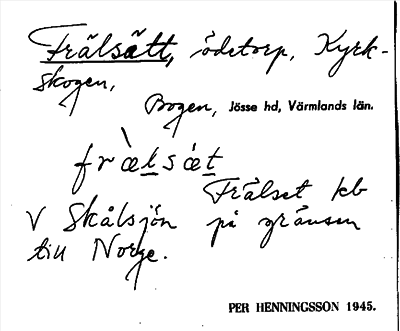 Frälsätt, ödetorp, Kyrk-
skogen,
Bogen, Jösse hd, Värmlands län.
fr̀ælsǽt
Frälset kb
V Skålsjön på gränsen
till Norge.
PER HENNINGSSON 1945.